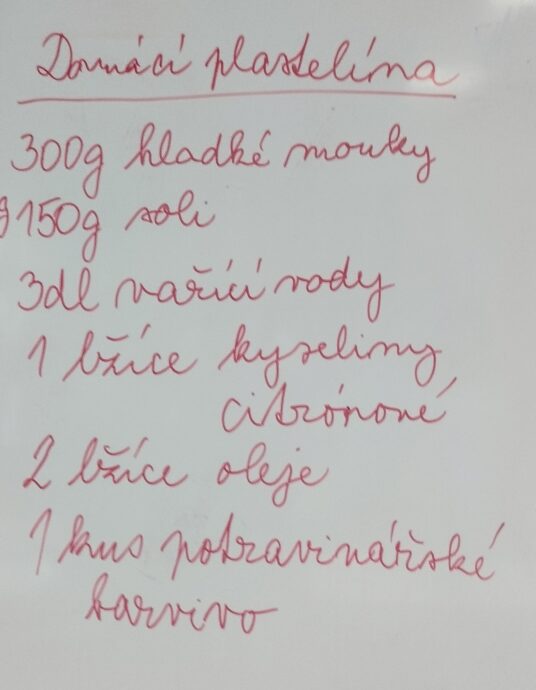 Domácí plastelína
300g hladké mouky
150g soli
3dl vařící vody
1 lžíce kyseliny
citrónové
2 lžíce oleje
1 kus potravinářské
barvivo